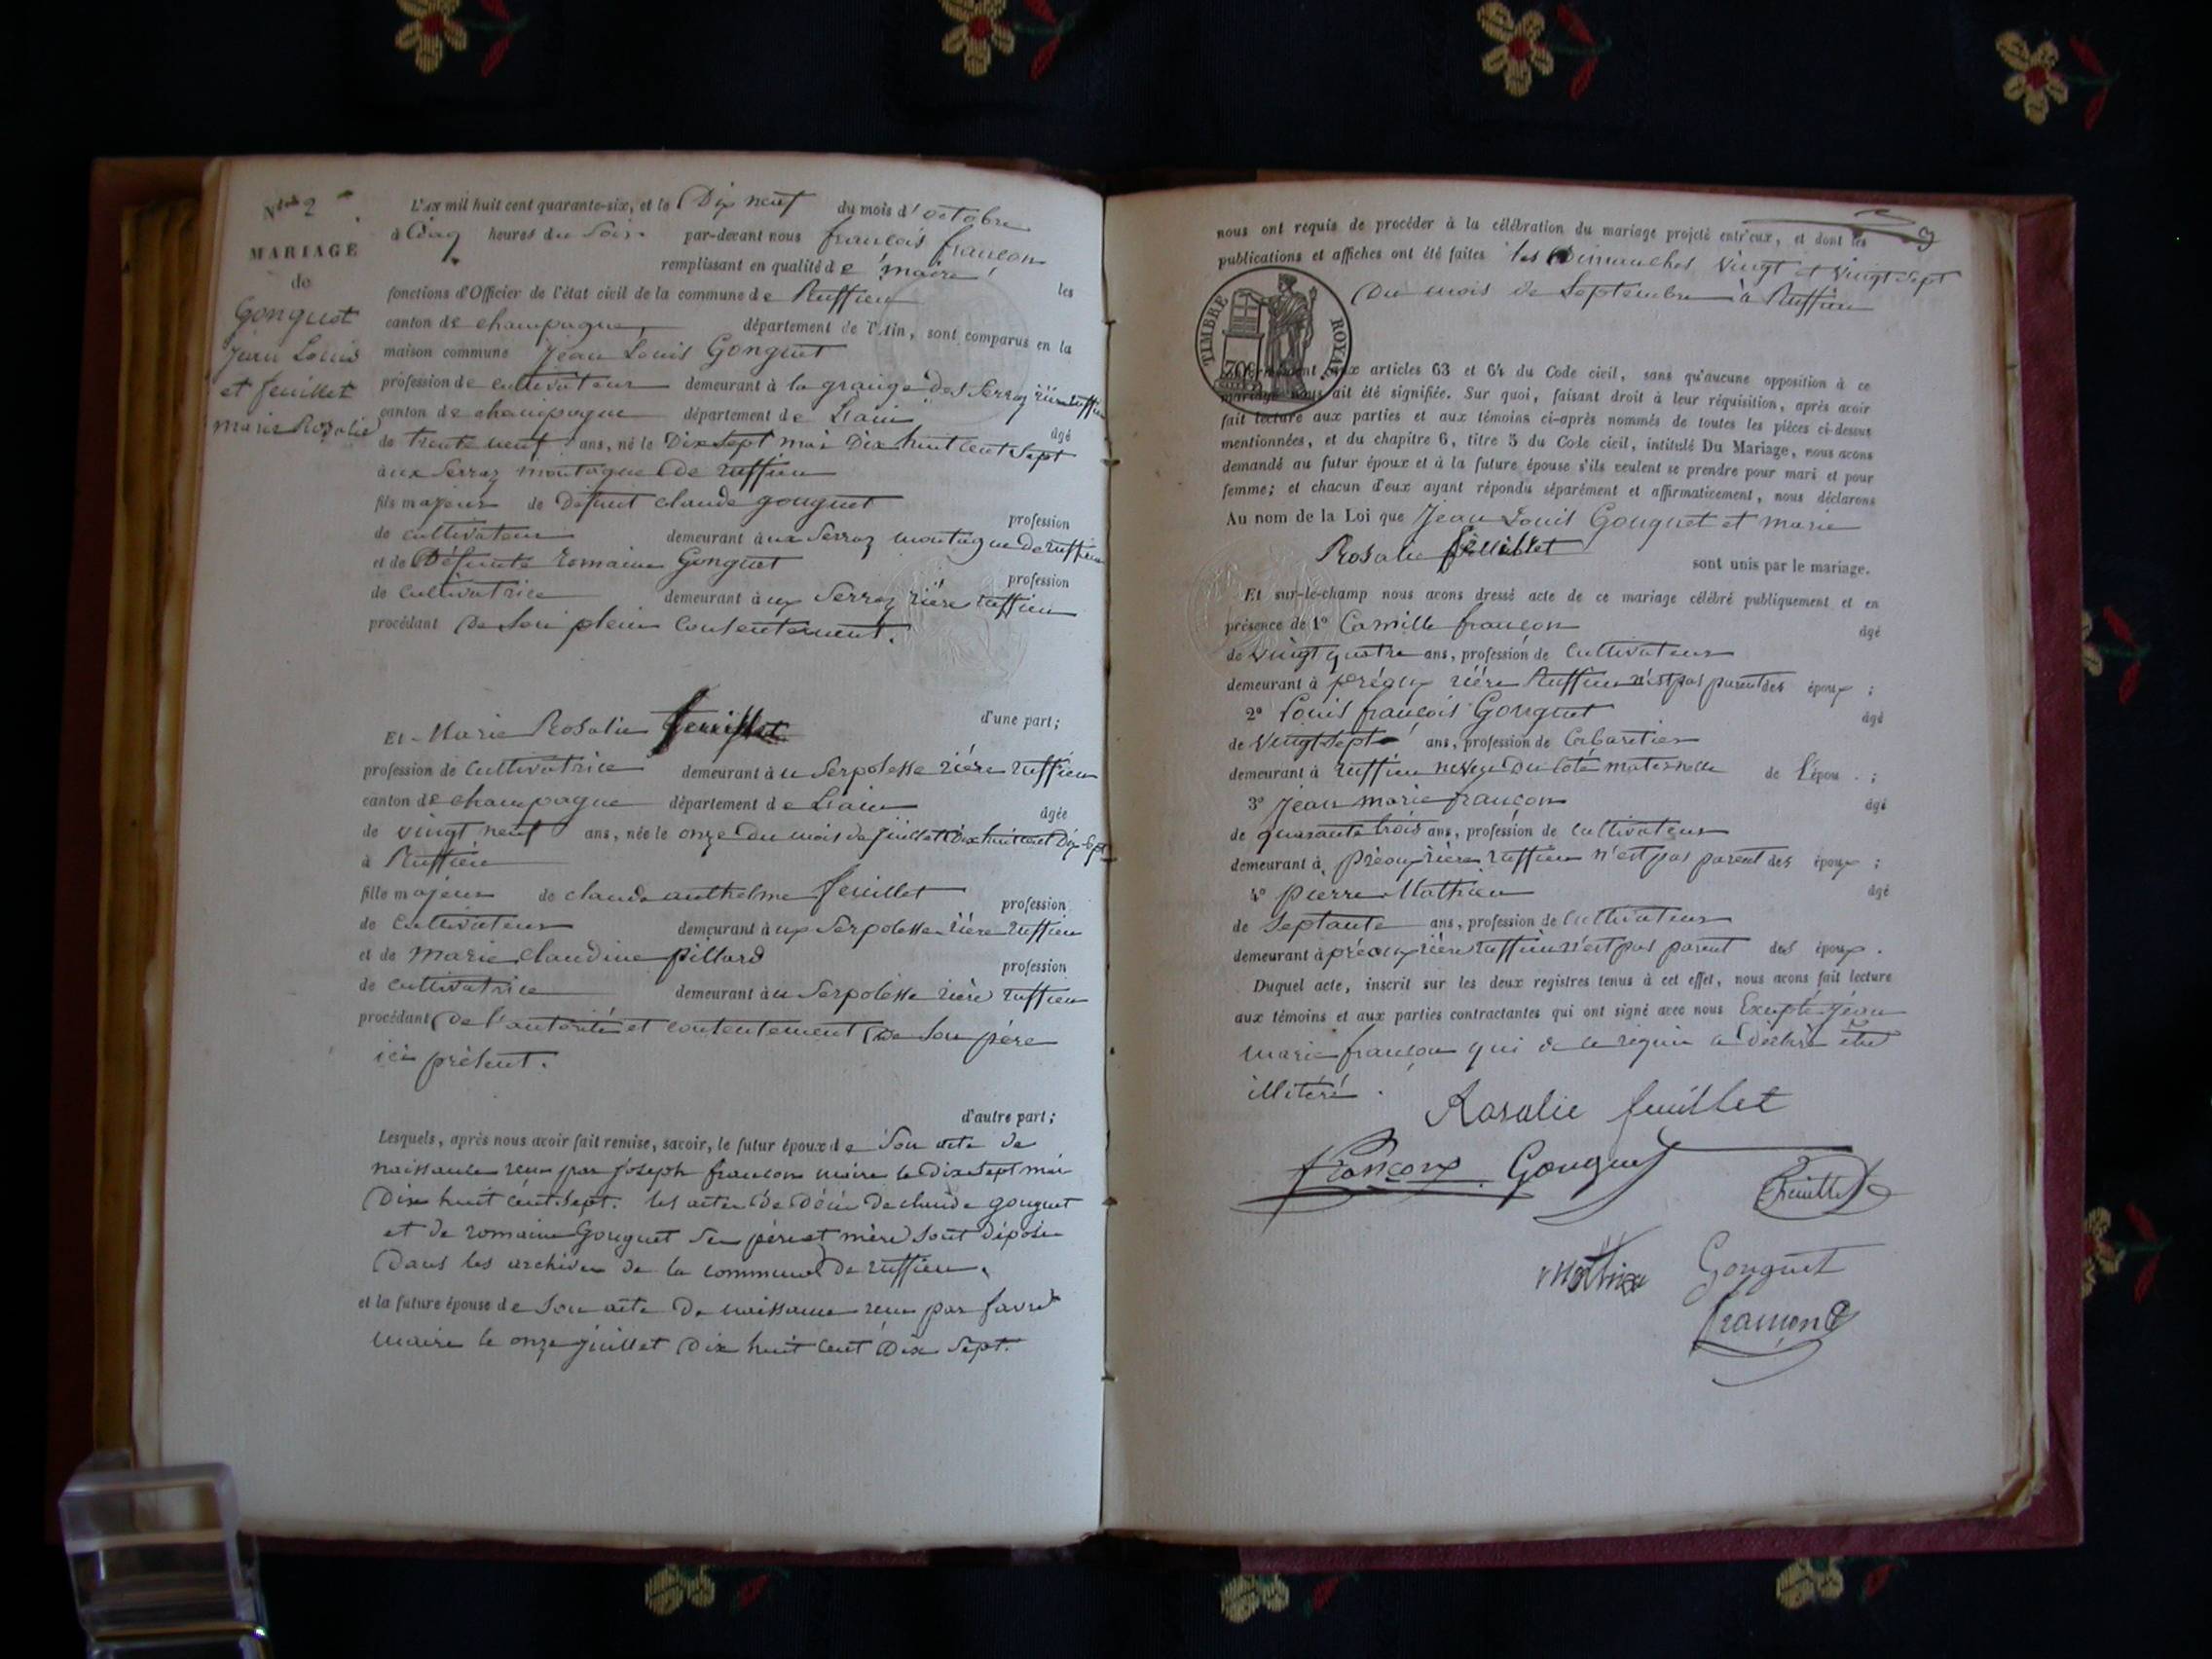 N° 2
MARIAGE
de
Gonguet
Jean Louis
et feuillet
marie Rozalie
L'AN mil huit cent quarante-six, et le Dix neuf du mois d'octobre
à Cinq heures du Soir par-devant nous françois françon
remplissant en qualité de maire les
fonctions d'Officier de l'état civil de la commune de Ruffieu
canton de champagne, département de l'Ain, sont comparus en la
maison commune Jean Louis Gonguet
profession de cultivateur demeurant à la grange des Serraz rière ruffieu
canton de champagne département de Lain âgé
de trente neuf ans, né le Dix Sept mai Dix huit Cent Sept
aux Serraz montagne de ruffieu
fils majeur de Défunt claude gonguet profession
de cultivateur demeurant aux Serraz montagne de ruffieu
et de Défunte romaine Gonguet profession
de Cultivatrice demeurant à ux Serraz rière ruffieu
procédant De Son plein Consentement.
d'une part;
Et Marie Rosalie feuillet
profession de Cultivatrice demeurant à u Serpolesse rière ruffieu
canton de champagne département de Lain âgée
de vingt neuf ans, née le onze Du mois de juillet Dix huit cent Dix-Sept
à Ruffieu
fille majeur de claude anthelme feuillet profession
de Cultivateur demeurant à ux Serpolesse rière ruffieu
et de marie claudine pillard profession
de Cultivatrice demeurant à u Serpolesse rière ruffieu
procédant De l'autorité et contentement De Son père
ici présent.
d'autre part;
Lesquels, après nous avoir fait remise, savoir, le futur époux de Son acte de
naissance reçu par joseph françon maire le Dix Sept mai
Dix huit Cent Sept. les actes De Décès De claude gonguet
et de romaine Gonguet Ses père et mère Sont déposés
Dans les archives de la commune De ruffieu.
et la future épouse de Son acte De naissance reçu par favre
maire le onze juillet Dix huit Cent Dix Sept.
3
nous ont requis de procéder à la célébration du mariage projeté entr'eux, et dont les
publications et affiches ont été faites les Dimanches Vingt et Vingt Sept
Du mois de Septembre à Ruffieu
TIMBRE ROYAL
conformément aux articles 63 et 64 du Code civil, sans qu'aucune opposition à ce
mariage nous ait été signifiée. Sur quoi, faisant droit à leur réquisition, après avoir
fait lecture aux parties et aux témoins ci-après nommés de toutes les pièces ci-dessus
mentionnées, et du chapitre 6, titre 5 du Code civil, intitulé Du Mariage, nous avons
demandé au futur époux et à la future épouse s'ils veulent se prendre pour mari et pour
femme; et chacun d'eux ayant répondu séparément et affirmativement, nous déclarons
Au nom de la Loi que Jean Louis Gonguet et marie
Rosalie feuillet sont unis par le mariage.
Et sur-le-champ nous avons dressé acte de ce mariage célébré publiquement et en
présence de 1° Camille françon âgé
de vingt quatre ans, profession de Cultivateur
demeurant à préoux rière Ruffieu n'est pas parent des époux ;
2° Louis françois Gonguet âgé
de Vingt Sept ans, profession de Cabaretier
demeurant à ruffieu neveu Du côté maternelle de L'épou ;
3° Jean marie françon âgé
de quarante trois ans, profession de Cultivateur
demeurant à préoux rière ruffieu n'est pas parent des époux ;
4° pierre Mathieu âgé
de Septante ans, profession de Cultivateur
demeurant à préoux rière ruffieu n'est pas parent des époux.
Duquel acte, inscrit sur les deux registres tenus à cet effet, nous avons fait lecture
aux témoins et aux parties contractantes qui ont signé avec nous Excepté jean
marie françon qui de ce requis a déclaré être
illitéré.
Rosalie feuillet
françon Gonguet
feuillet
Mathieu Gonguet
françon C